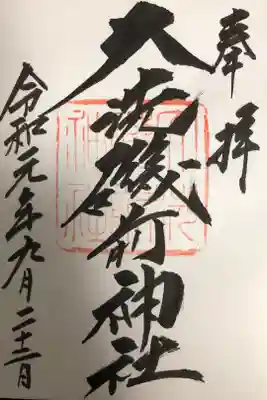 奉拝
大洗磯前神社
令和元年九月二十二日